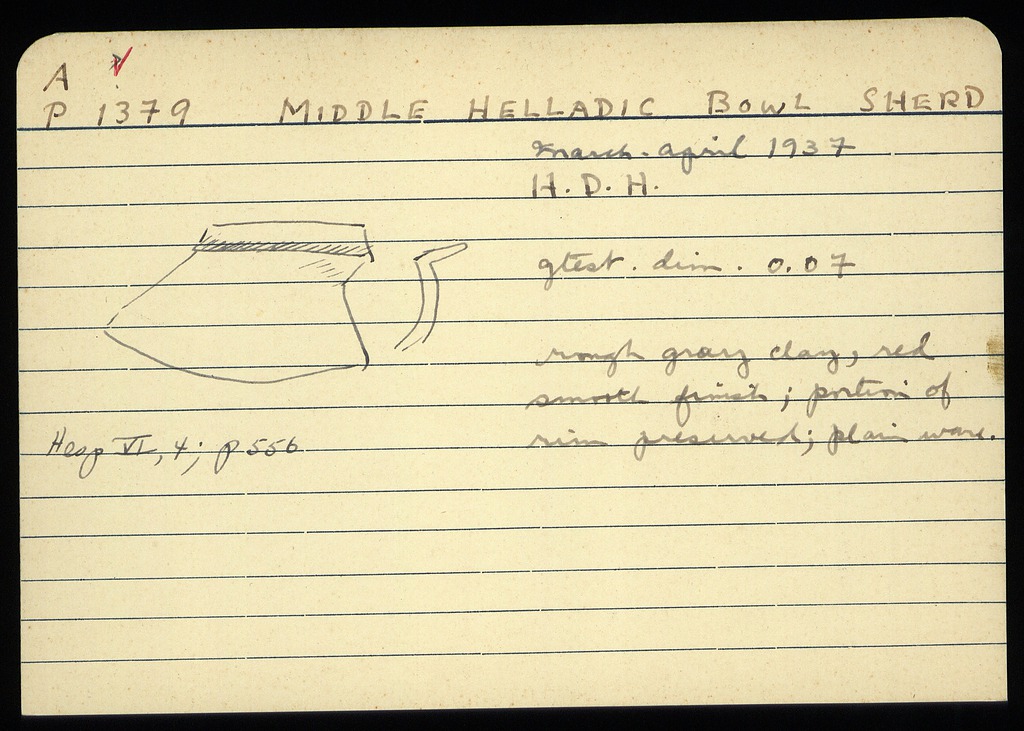 A
P 1379 MIDDLE HELLADIC BOWL SHERD
March-April 1937
H. D. H.
gtest. dim. 0.07
rough gray clay, red
smooth finish; portion of
rim preserved; plain ware.
Hesp VI, 4; p 556